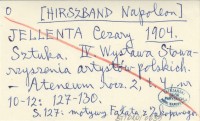 O [HIRSZBAND Napoleon]
JELLENTA Cezary 1904.
Sztuka. IV Wystawa Stowa-
rzyszenia artystów polskich.
- Ateneum Rocz. 2, t. 4 nr
10-12: 127-130.
S. 127: motywy Fałata z Zakopanego.